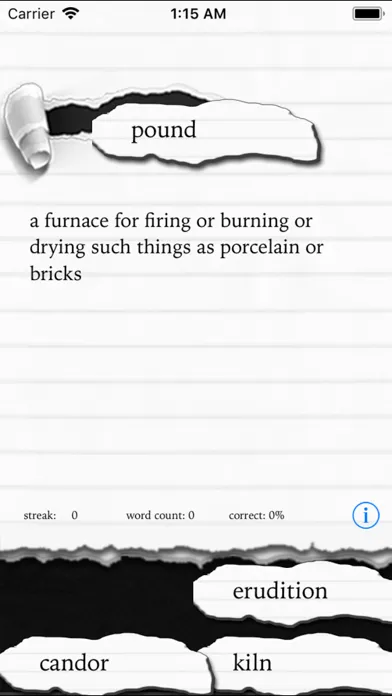 Carrier 1:15 AM
pound
a furnace for firing or burning or
drying such things as porcelain or
bricks
streak: 0 word count: 0 correct: 0% i
erudition
candor kiln